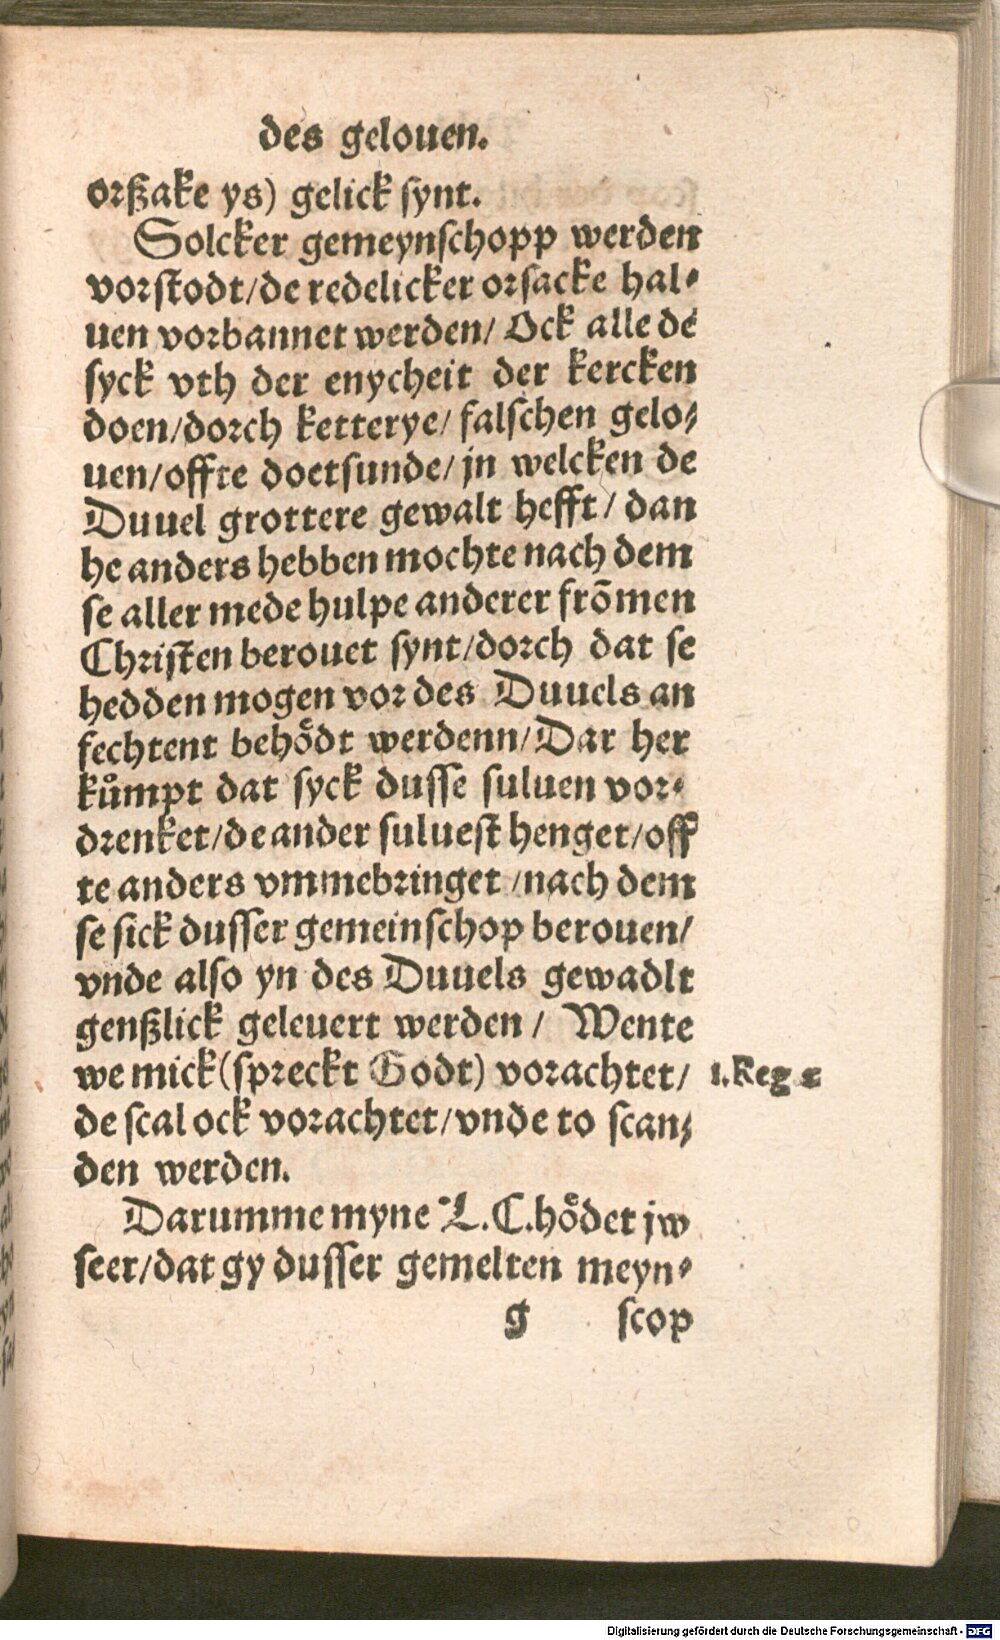 des gelouen.
orßake ys) gelick synt.
Solcker gemeynschopp werden
vorstodt/de redelicker orsacke hal⸗
uen vorbannet werden/ Ock alle de
syck vth der enycheit der kercken
doen/dorch ketterye/ falschen gelo⸗
uen/offte doetsunde/ jn welcken de
Duuel grottere gewalt hefft/ dan
he anders hebben mochte nach dem
se aller mede hulpe anderer frõmen
Christen berouet synt/dorch dat se
hedden mogen vor des Duuels an
fechtent behoͤdt werdenn/Dar her
kuͦmpt dat syck dusse suluen vor⸗
drenket/de ander suluest henget/off
te anders vmmebringet /nach dem
se sick dusser gemeinschop berouen/
vnde also yn des Duuels gewadlt
genßlick geleuert werden/ Wente
we mick(spreckt Godt) vorachtet/ 1.Reg 2
de scal ock vorachtet/vnde to scan⸗
den werden.
Darumme myne L.C.hoͤdet jw
seer/dat gy dusser gemelten meyn⸗
g scop
Digitalisierung gefördert durch die Deutsche Forschungsgemeinschaft - DFG